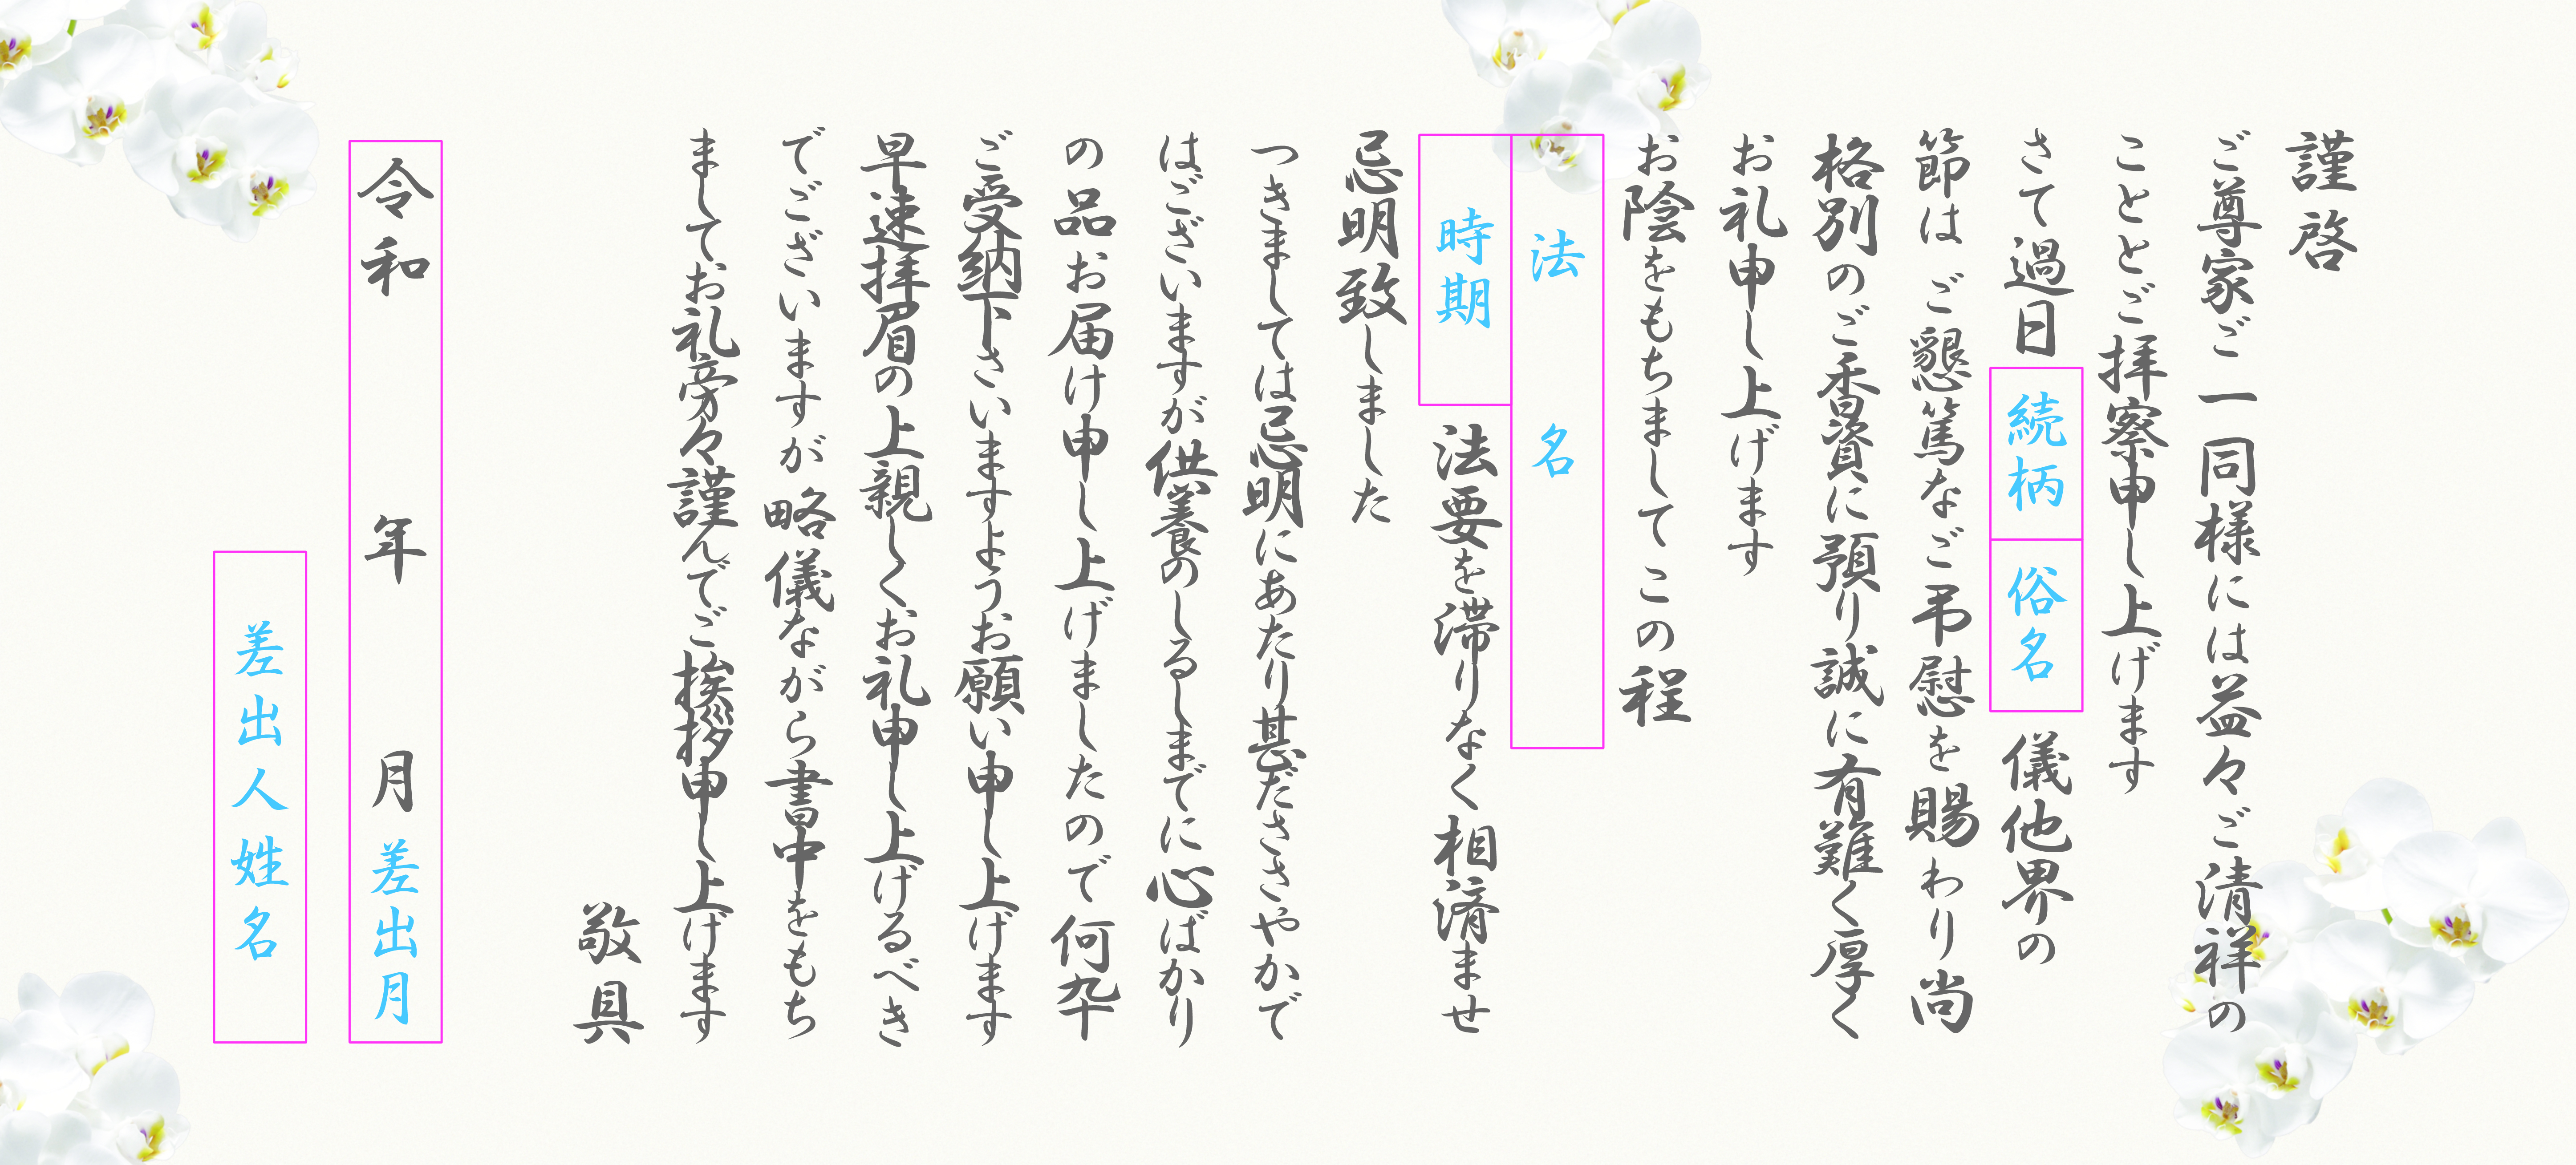 謹啓
ご尊家ご一同様には益々ご清祥の
こととご拝察申し上げます
さて過日 続柄 俗名 儀他界の
節は ご懇篤なご弔慰を賜わり尚
格別のご香資に預り誠に有難く厚く
お礼申し上げます
お陰をもちまして この程
法名
時期 法要を滞りなく相済ませ
忌明致しました
つきましては忌明にあたり甚だささやかで
はございますが供養のしるしまでに心ばかり
の品お届け申し上げましたので何卒
ご受納下さいますようお願い申し上げます
早速拝眉の上親しくお礼申し上げるべき
でございますが略儀ながら書中をもち
ましてお礼旁々謹んでご挨拶申し上げます
敬具
令和 年 月 差出月
差出人姓名